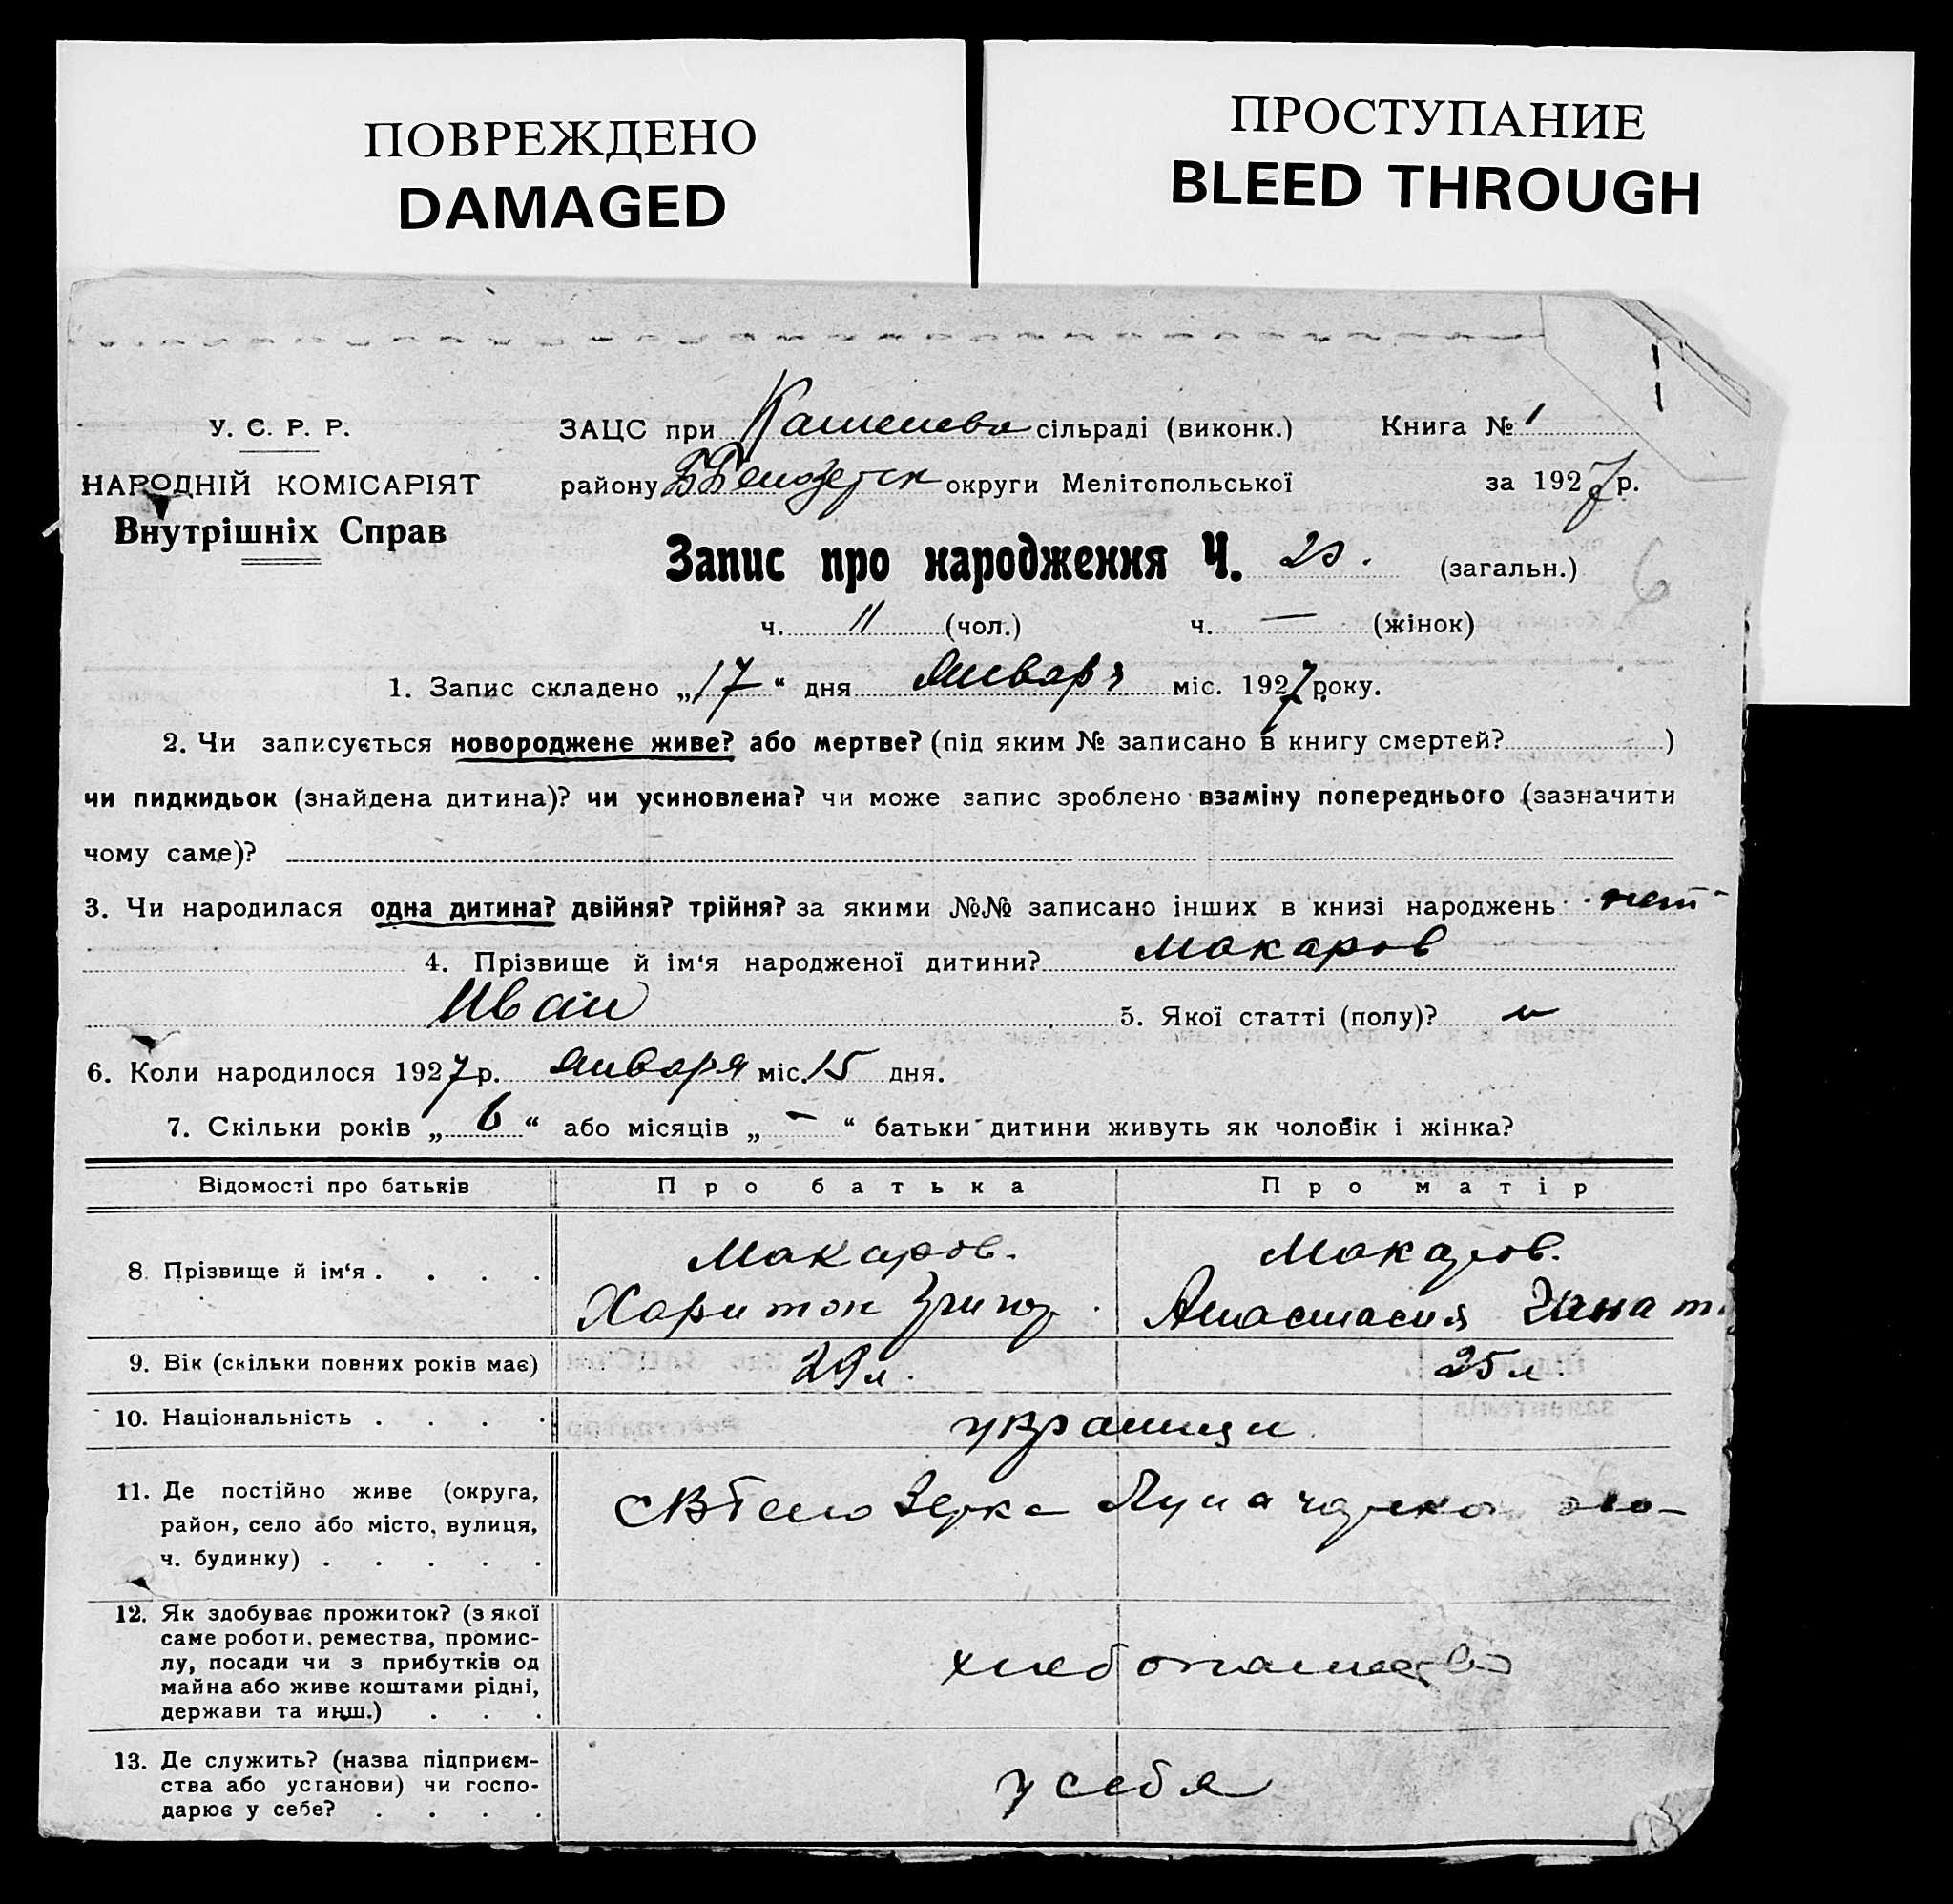 ПОВРЕЖДЕНО
DAMAGED
ПРОСТУПАНИЕ
BLEED THROUGH
У. С. Р. Р.
НАРОДНІЙ КОМІСАРІЯТ
Внутрішніх Справ
ЗАЦС при сільраді (виконк.) Книга № 1
району округи Мелітопольської за 1927 р.
Запис про народження Ч. 20. (загальн.)
6
ч. 11 (чол.) ч. — (жінок)
1. Запис складено „17“ дня Января міс. 1927 року.
2. Чи записується новороджене живе? або мертве? (під яким № записано в книгу смертей? )
чи пидкидьок (знайдена дитина)? чи усиновлена? чи може запис зроблено взаміну попереднього (зазначити
чому саме)?
3. Чи народилася одна дитина? двійня? трійня? за якими №№ записано інших в книзі народжень нет
4. Прізвище й ім‘я народженої дитини? Макаров
Иван 5. Якої статті (полу)? м
6. Коли народилося 1927 р. Января міс. 15 дня.
7. Скільки років „6“ або місяців „-“ батьки дитини живуть як чоловік і жінка?
Відомості про батьків Про батька Про матір
8. Прізвище й ім‘я . . . . Макаров. Макаров.
Харитон Григор. Анастасия Игнат.
9. Вік (скільки повних років має) 29 л. 25 л.
10. Національність . . . . украинцы
11. Де постійно живе (округа,
район, село або місто, вулиця,
ч. будинку) . . . . .
12. Як здобуває прожиток? (з якої
саме роботи, ремества, промис-
лу, посади чи з прибутків од
майна або живе коштами рідні,
держави та инш.) . . .
хлебопашество
13. Де служить? (назва підприєм-
ства або установи) чи госпо-
дарює у себе? . . . .
у себя